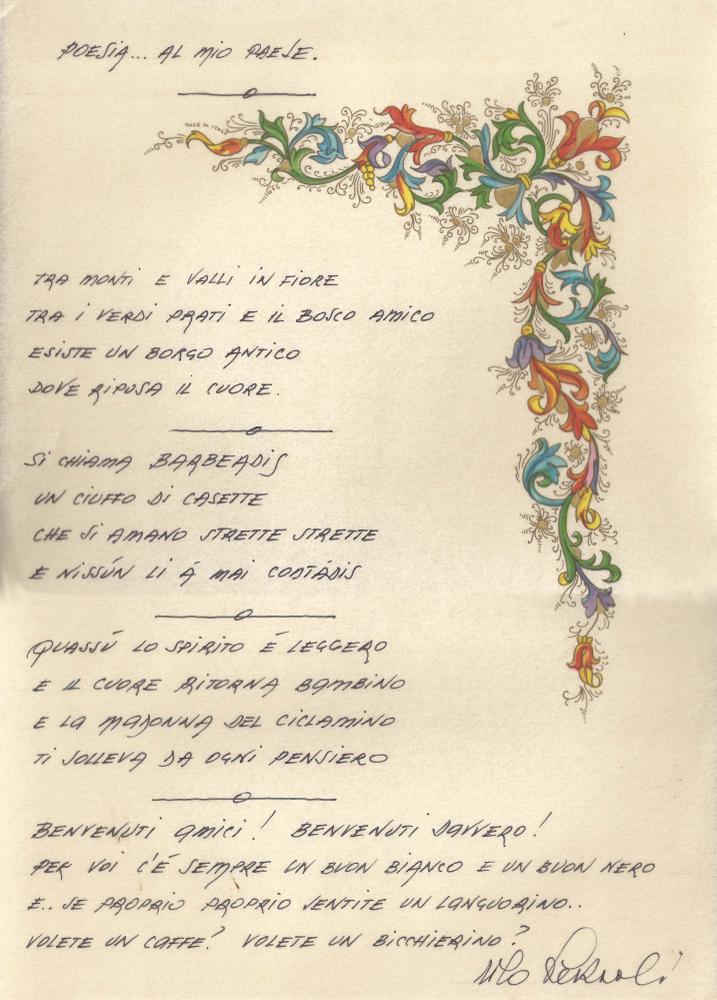 POESIA... AL MIO PAESE.
MADE IN ITALY
TRA MONTI E VALLI IN FIORE
TRA I VERDI PRATI E IL BOSCO AMICO
ESISTE UN BORGO ANTICO
DOVE RIPOSA IL CUORE.
SI CHIAMA BARBEADIS
UN CIUFFO DI CASETTE
CHE SI AMANO STRETTE STRETTE
E NISSÚN LI Á MAI CONTÁDIS
QUASSÚ LO SPIRITO É LEGGERO
E IL CUORE RITORNA BAMBINO
E LA MADONNA DEL CICLAMINO
TI SOLLEVA DA OGNI PENSIERO
BENVENUTI AMICI! BENVENUTI DAVVERO!
PER VOI C'É SEMPRE UN BUON BIANCO E UN BUON NERO
E.. SE PROPRIO PROPRIO SENTITE UN LANGUORINO..
VOLETE UN CAFFE? VOLETE UN BICCHIERINO?